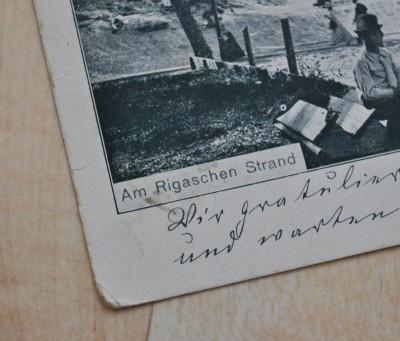 Am Rigaschen Strand
Wir gratulier
und warten